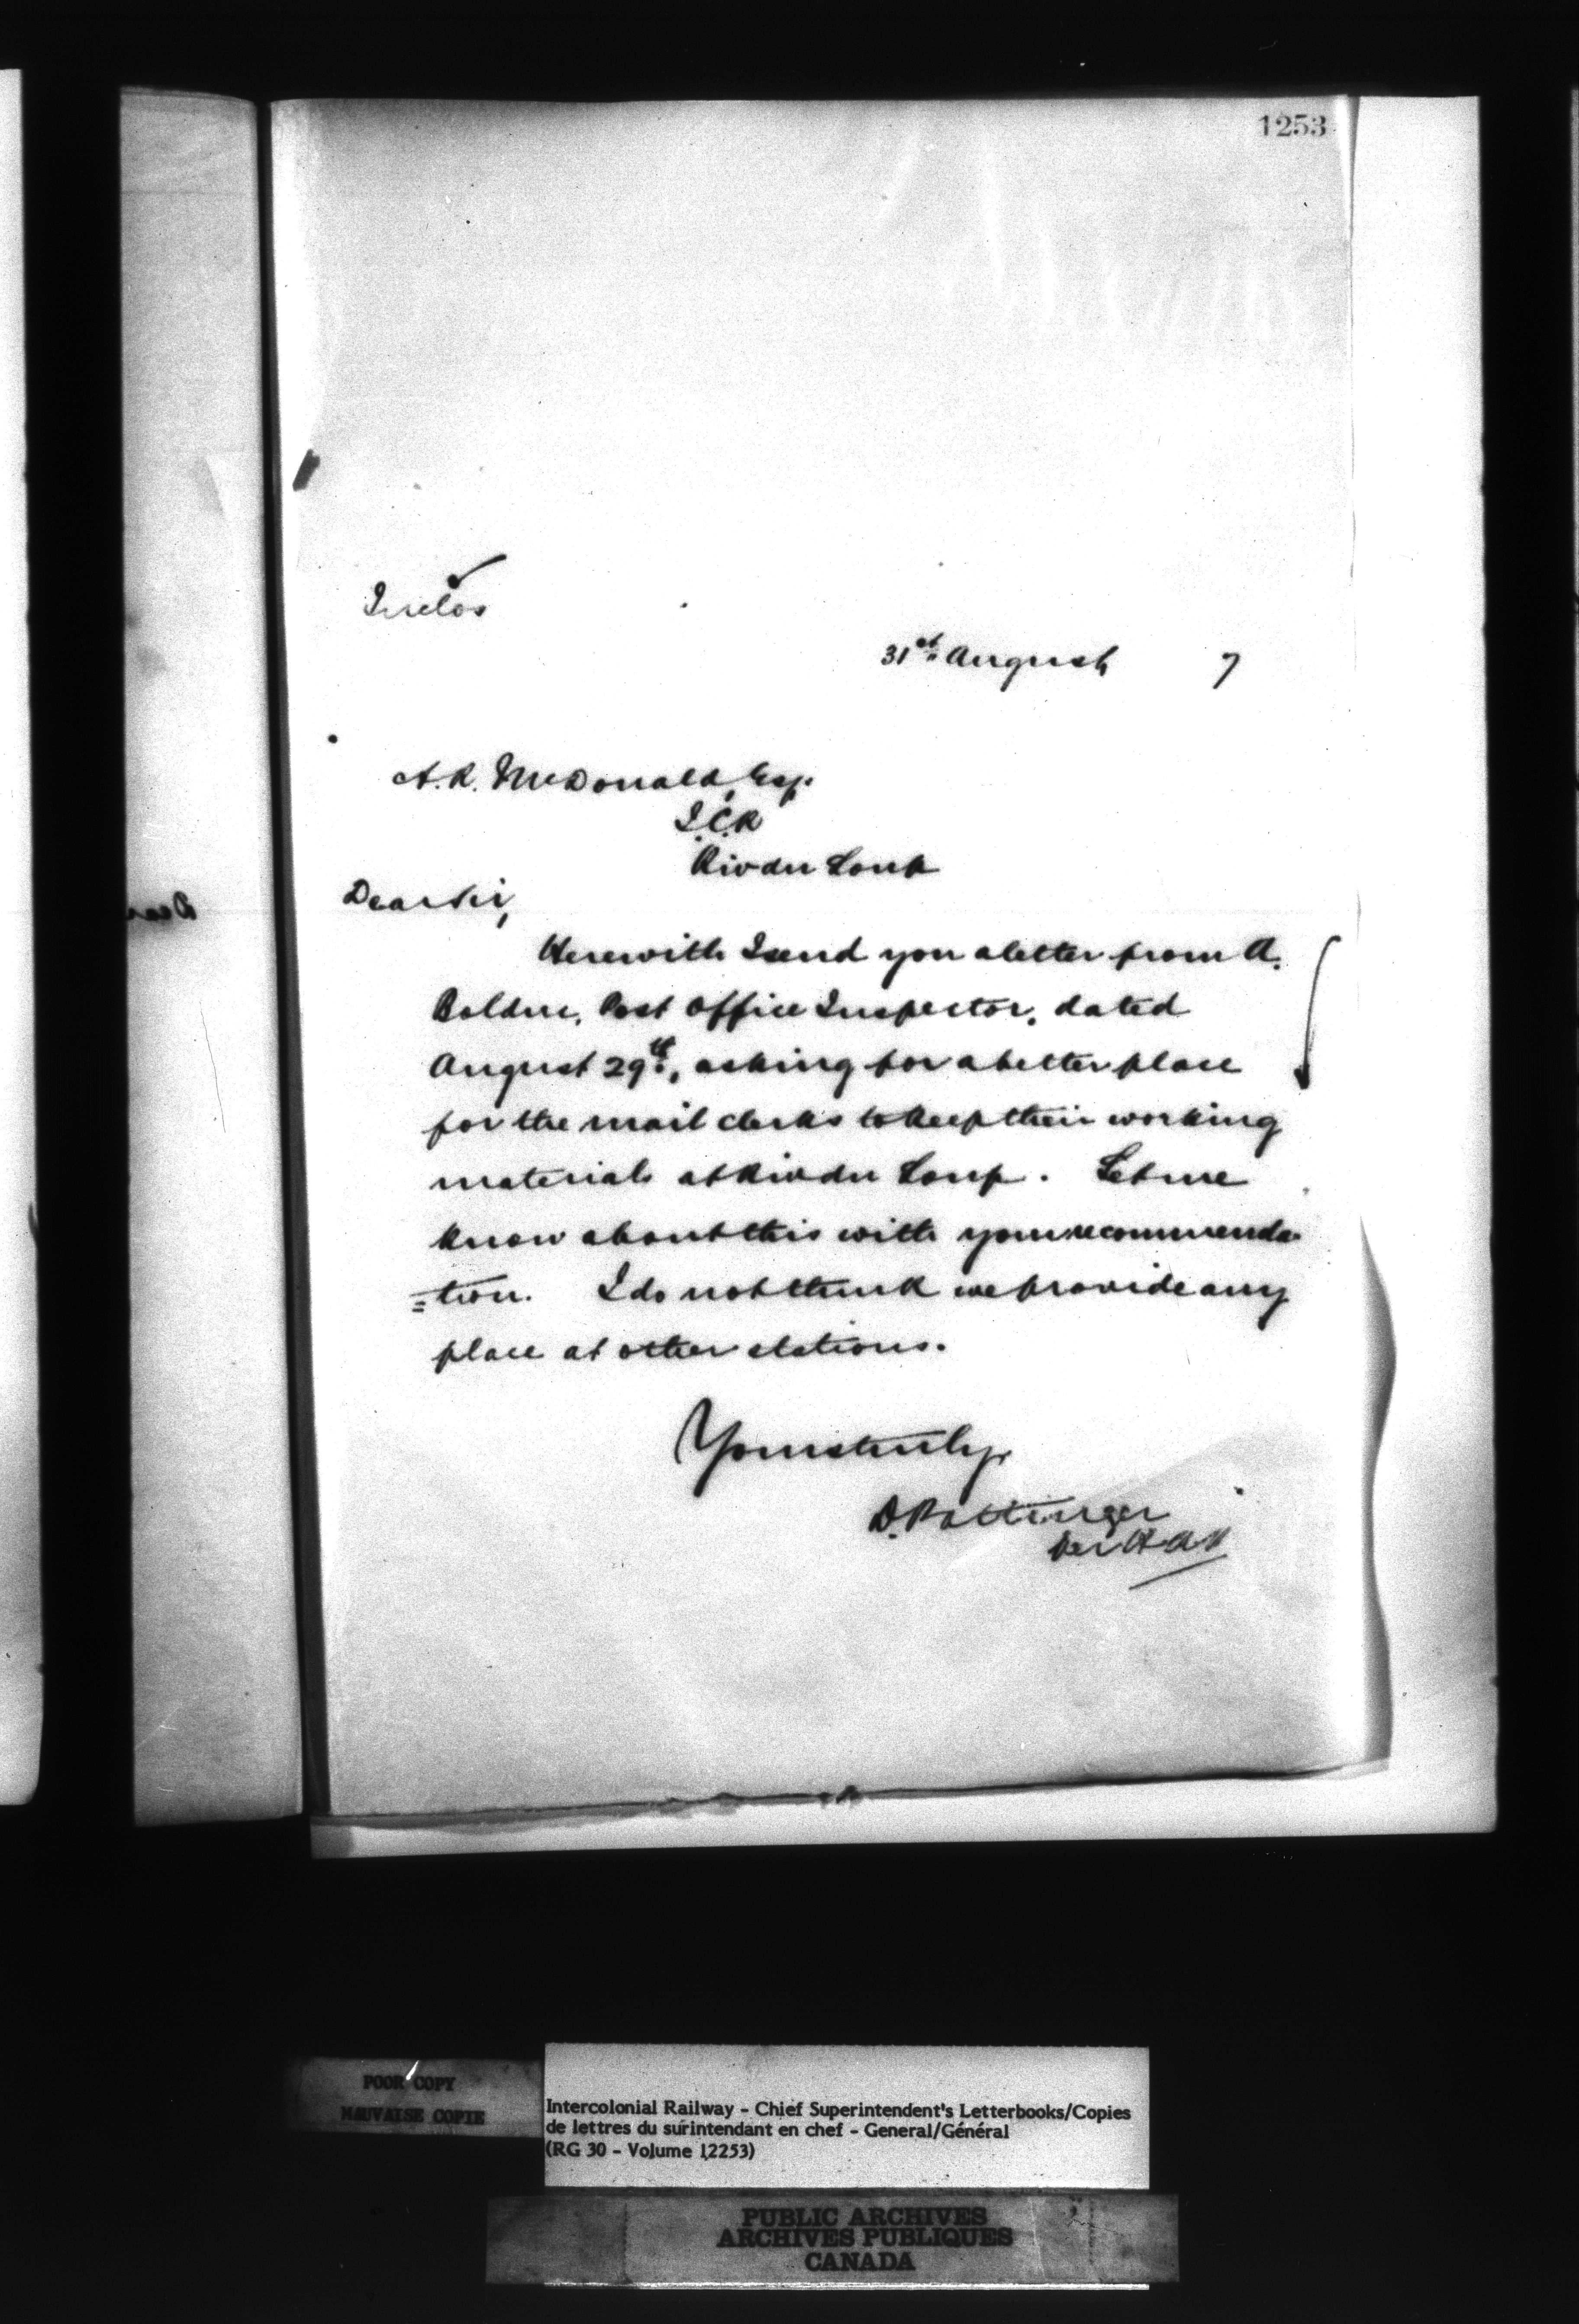 1253
Inclos
31st August 7
A. R. McDonald, Esq.
I.C.R
Riv du Loup
Dear Sir,
Herewith I send you a letter from A.
Bolduc, Post Office Inspector, dated
August 29th, asking for a better place
for the mail clerks to keep their working
materials at Riv du Loup. Let me
know about this with your recommenda-
=tion. I do not think we provide any
place at other stations.
Yours truly,
D. Pottinger
per
POOR COPY
MAUVAISE COPIE
Intercolonial Railway - Chief Superintendent's Letterbooks/Copies
de lettres du surintendant en chef - General/Général
(RG 30 - Volume 12253)
PUBLIC ARCHIVES
ARCHIVES PUBLIQUES
CANADA